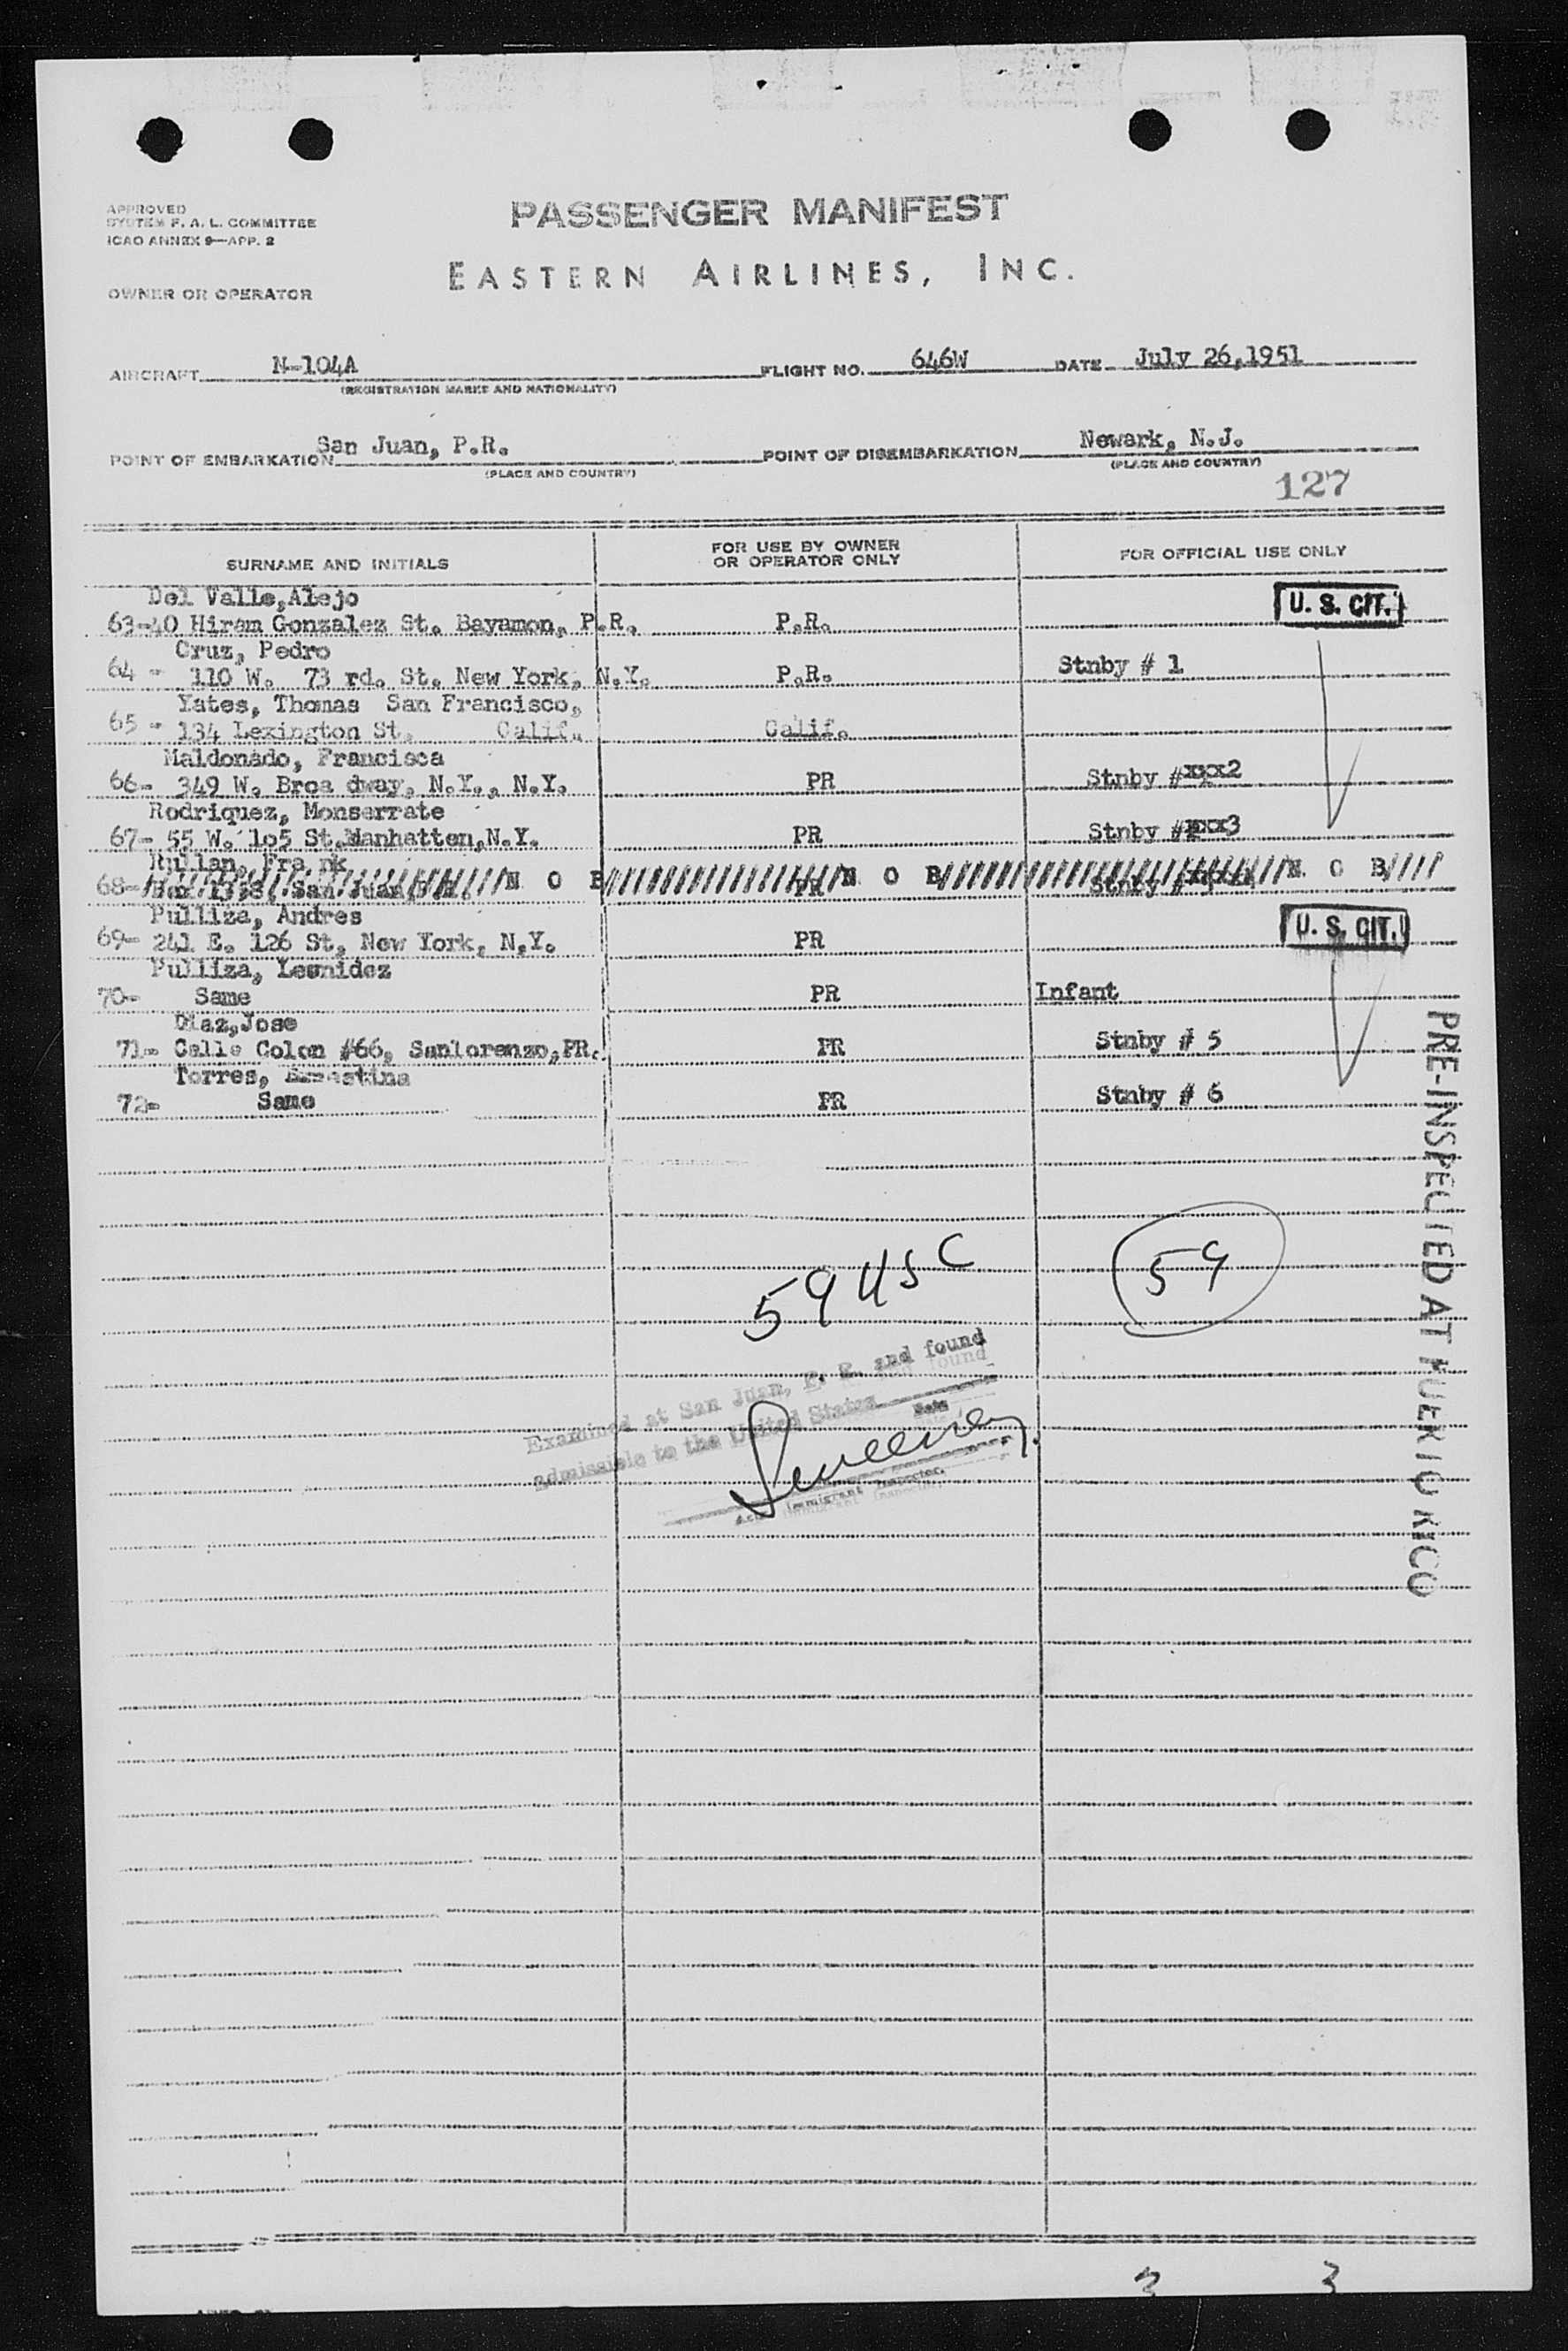 APPROVED
SYSTEM F. A. L. COMMITTEE
ICAO ANNEX 9—APP. 2
PASSENGER MANIFEST
OWNER OR OPERATOR
EASTERN AIRLINES, INC.
AIRCRAFT N-104A FLIGHT NO. 646W DATE July 26,1951
(REGISTRATION MARKS AND NATIONALITY)
POINT OF EMBARKATION San Juan, P.R. POINT OF DISEMBARKATION Newark, N.J.
(PLACE AND COUNTRY) (PLACE AND COUNTRY)
127
SURNAME AND INITIALS FOR USE BY OWNER OR OPERATOR ONLY FOR OFFICIAL USE ONLY
Del Valle,Alejo U. S. CIT.
63-40 Hiram Gonzalez St. Bayamon, P.R. P.R.
Cruz, Pedro
64 - 110 W. 73 rd. St. New York, N.Y. P.R. Stnby # 1
Yates, Thomas San Francisco,
65 - 134 Lexington St. Calif. Calif.
Maldonado, Francisca
66- 349 W. Broa dway, N.Y., N.Y. PR Stnby #xxx2
Rodriquez, Monserrate
67- 55 W. 105 St.Manhatten,N.Y. PR Stnby #xxx3
Rullan, Fra nk
68- San Juan, N O B PR N O B Stnby # N O B
Pulliza, Andres U. S. CIT.
69- 241 E. 126 St, New York, N.Y. PR
Pulliza, Leonidez
70- Same PR Infant
Diaz,Jose
71- Calle Colon #66, Sanlorenzo,PR. PR Stnby # 5
Torres,
72- Same PR Stnby # 6
PRE-INSPECTED AT PUERTO RICO
59 USC 59
Examined at San Juan, P. R. and found
admissible to the United States
Date
Immigrant Inspector.
3 3